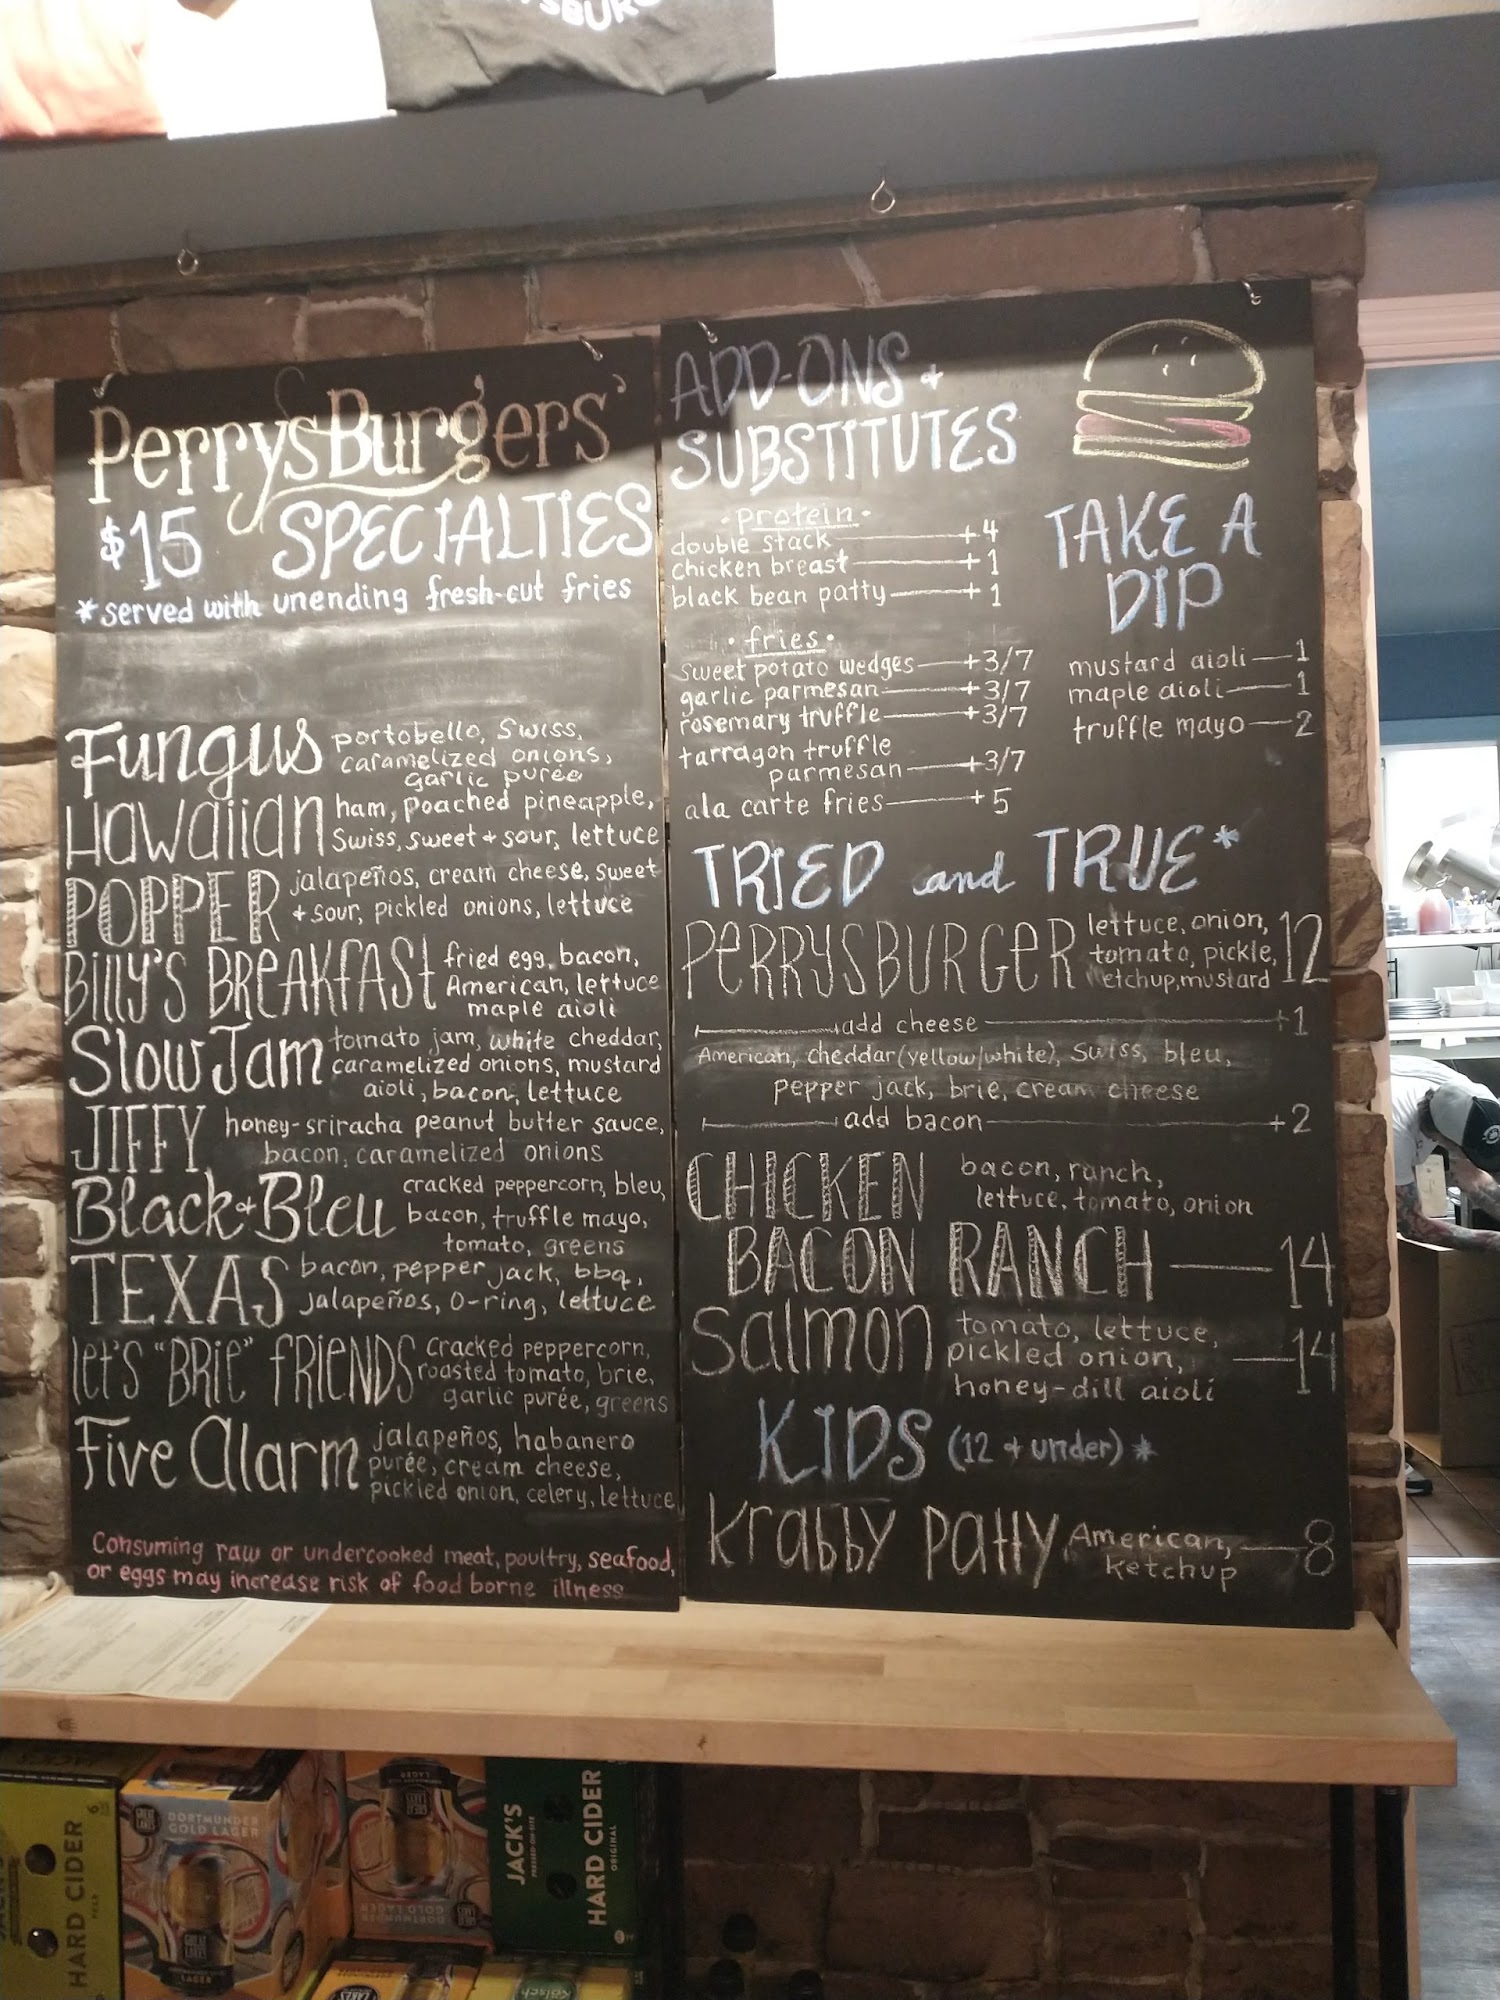 PerrysBurgers'
$15 SPECIALTIES
*served with unending fresh-cut fries
Fungus portobello, Swiss,
caramelized onions,
garlic purée
Hawaiian ham, poached pineapple,
Swiss, sweet + sour, lettuce
POPPER jalapeños, cream cheese, sweet
+ sour, pickled onions, lettuce
Billy's BREAKFAST fried egg, bacon,
American, lettuce
maple aioli
Slow Jam tomato jam, white cheddar,
caramelized onions, mustard
aioli, bacon, lettuce
JIFFY honey-sriracha peanut butter sauce,
bacon, caramelized onions
Black + Bleu cracked peppercorn, bleu,
bacon, truffle mayo,
tomato, greens
TEXAS bacon, pepper jack, bbq,
jalapeños, O-ring, lettuce
let's "BRIE" FRIENDS cracked peppercorn,
roasted tomato, brie,
garlic purée, greens
Five Alarm jalapeños, habanero
purée, cream cheese,
pickled onion, celery, lettuce
Consuming raw or undercooked meat, poultry, seafood,
or eggs may increase risk of food borne illness
ADD-ONS +
SUBSTITUTES
• protein •
double stack +4
chicken breast +1
black bean patty +1
• fries •
sweet potato wedges +3/7
garlic parmesan +3/7
rosemary truffle +3/7
tarragon truffle
parmesan +3/7
ala carte fries +5
TAKE A
DIP
mustard aioli 1
maple aioli 1
truffle mayo 2
TRIED and TRUE*
PERRYSBURGER lettuce, onion,
tomato, pickle, 12
ketchup, mustard
add cheese +1
American, cheddar (yellow/white), Swiss, bleu,
pepper jack, brie, cream cheese
add bacon +2
CHICKEN bacon, ranch,
lettuce, tomato, onion
BACON RANCH 14
Salmon tomato, lettuce,
pickled onion, 14
honey-dill aioli
KIDS (12 + under) *
Krabby Patty American, 8
Ketchup
HARD CIDER
GREAT LAKES
DORTMUNDER
GOLD LAGER
LAGER
DORTMUNDER
GOLD LAGER
JACK'S
HARD CIDER
ORIGINAL
Kölsch